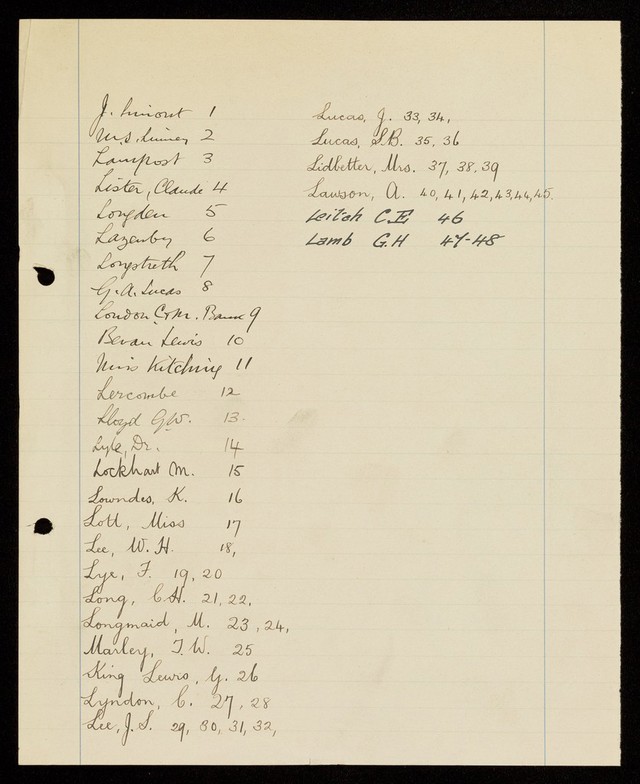 J. Limont 1
Lampost 3
Lister, Claude 4
Longden 5
Lazenby 6
Longstreth 7
G. A. Lucas 8
London Com. Bank 9
Bevan Lewis 10
Miss Kitching 11
Lercombe 12
Lloyd G.W. 13.
Lyle, Dr. 14
Lockhart M. 15
Lowndes, K. 16
Lott, Miss 17
Lee, W. H. 18,
Lye, F. 19, 20
Long, C.H. 21, 22,
Longmaid, M. 23, 24,
Marley, T. W. 25
King Lewis, G. 26
Lyndon, C. 27, 28
Lee, J. S. 29, 30, 31, 32,
Lucas, J. 33, 34,
Lucas, S.B. 35, 36
Lidbetter, Mrs. 37, 38, 39
Lawson, A. 40, 41, 42, 43, 44, 45.
Leitch C.E 46
Lamb G.H 47-48